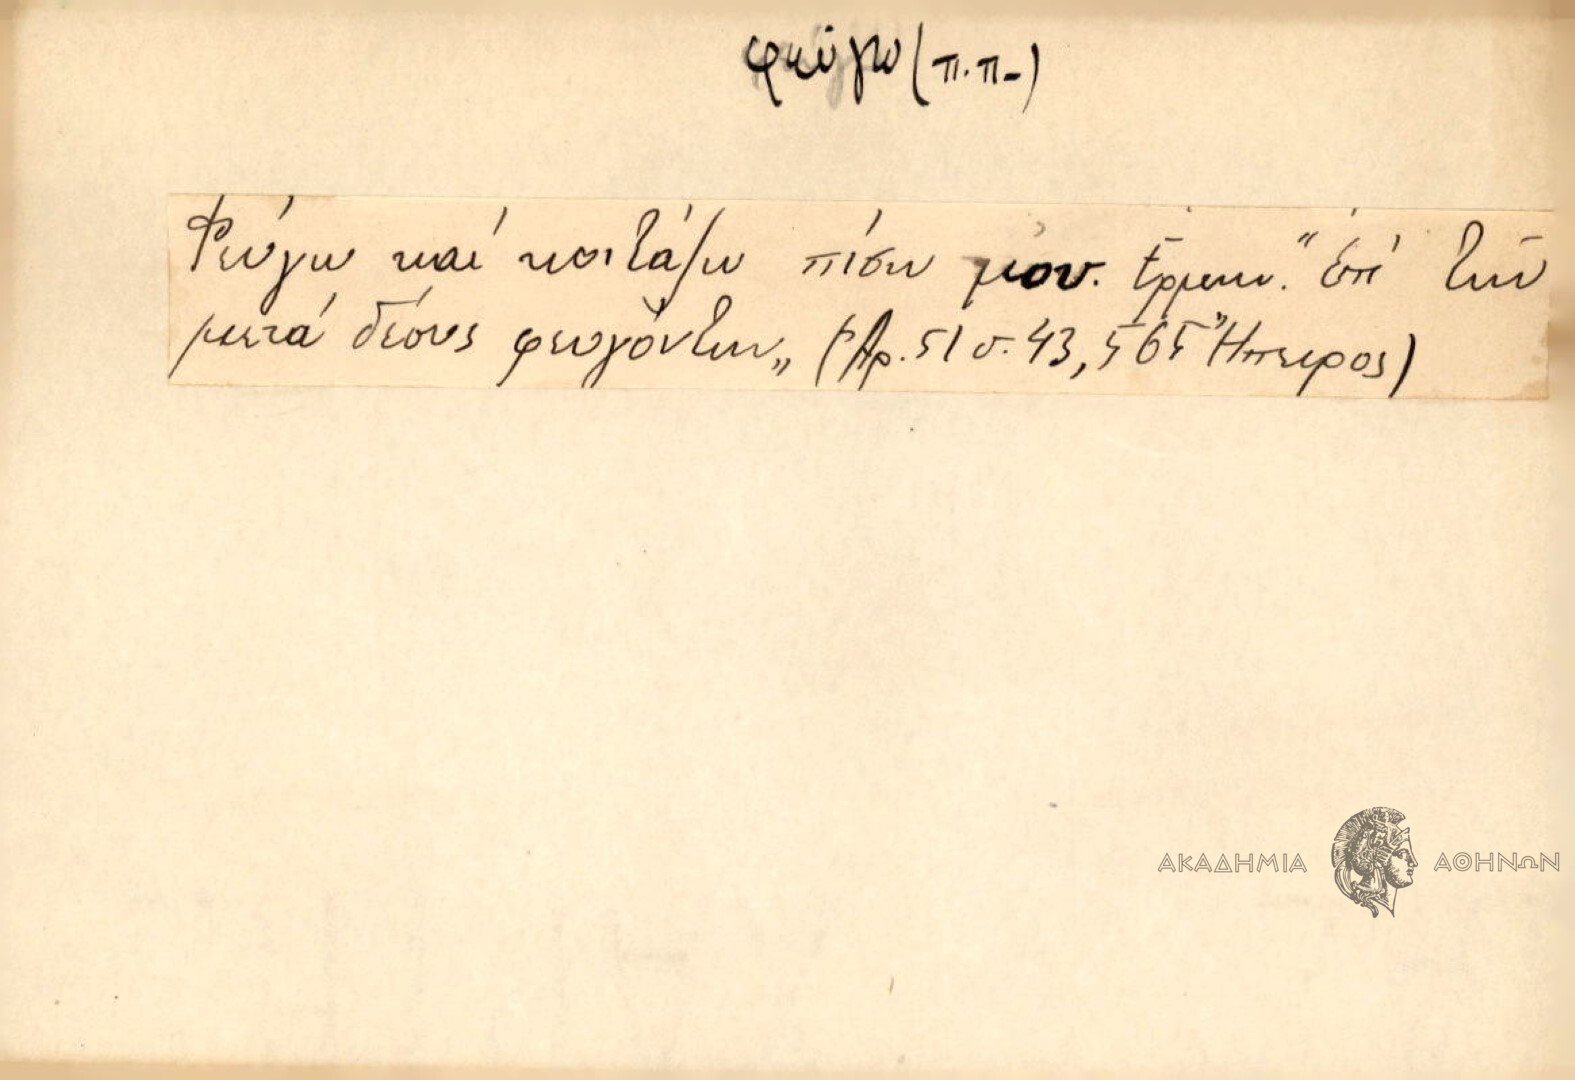 φεύγω (π.π-)
Φεύγω καί κοιτάζω πίσω μου. Ερμην. "ἐπί τῶν
μετά δέους φευγόντων„ (Ἀρ. 51 σ. 43, 565 Ἤπειρος)
ΑΚΑΔΗΜΙΑ ΑΘΗΝΩΝ